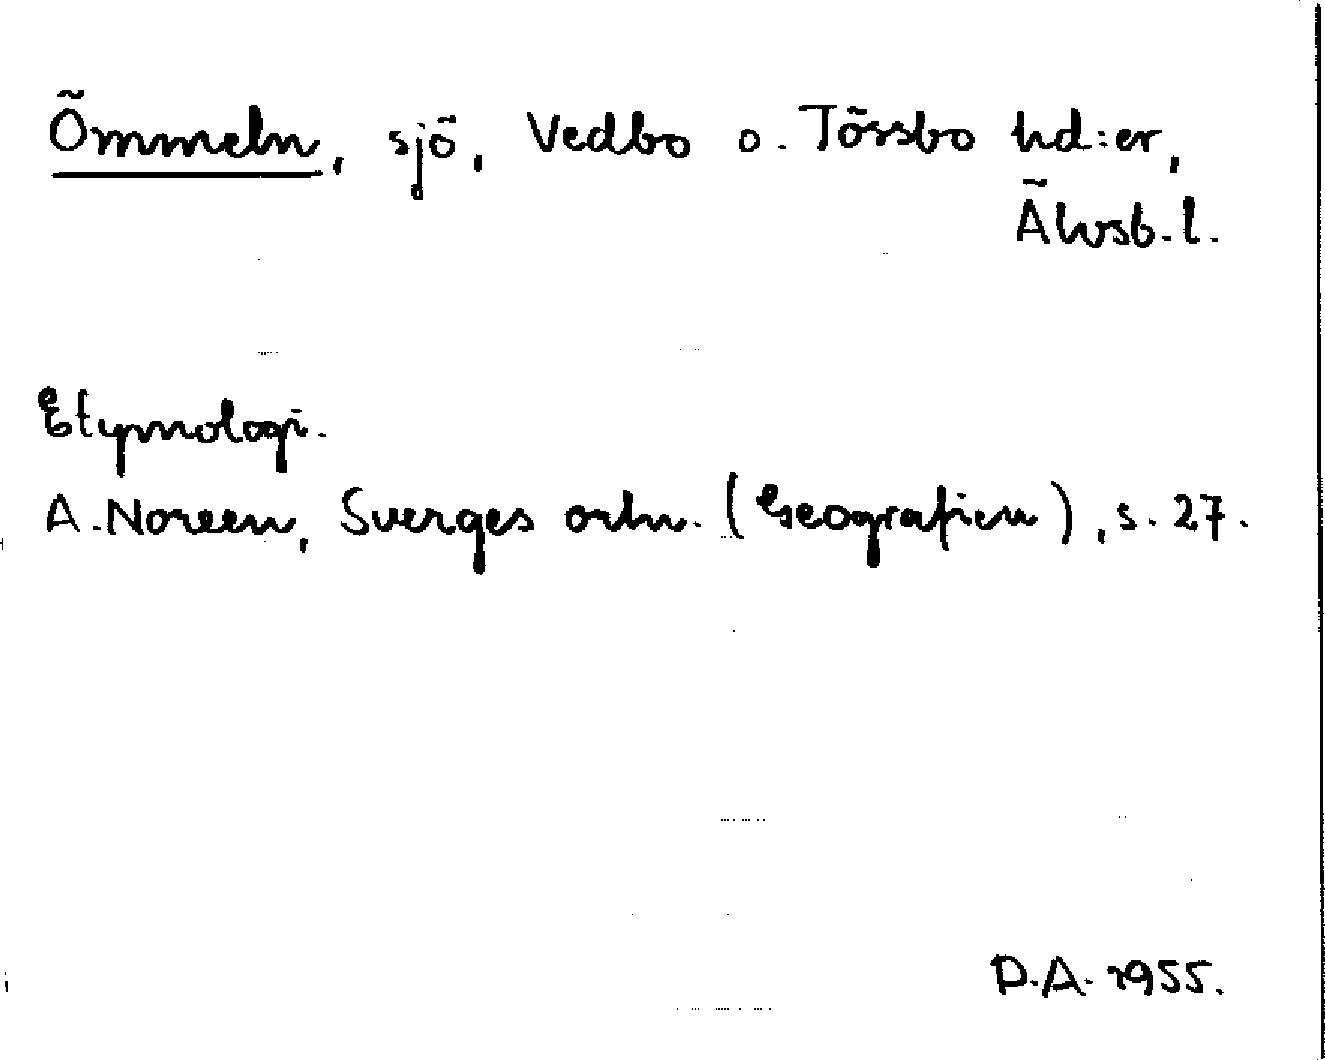 Ömmeln, sjö, Vedbo o. Tössbo hd:er,
Älvsb. l.
Etymologi.
A. Noreen, Sverges ortn. (Geografien), s. 27.
D.A. 1955.